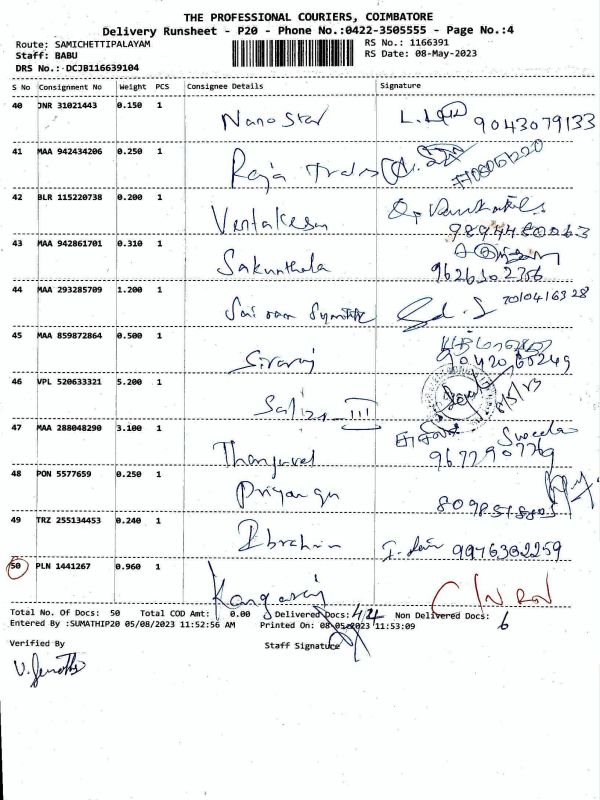 THE PROFESSIONAL COURIERS, COIMBATORE
Delivery Runsheet - P20 - Phone No.:0422-3505555 - Page No.:4
Route: SAMICHETTIPALAYAM RS No.: 1166391
Staff: BABU RS Date: 08-May-2023
DRS No.:-DCJB116639104
S No Consignment No Weight PCS Consignee Details Signature
40 JNR 31021443 0.150 1 Nano Star 9043079133
41 MAA 942434206 0.250 1 Raja
42 BLR 115220738 0.200 1 Ventakesan
9894480063
43 MAA 942861701 0.310 1 Sakunthala
9626302756
44 MAA 293285709 1.200 1 Sai ram 7010416328
45 MAA 859872864 0.500 1 Sivaraj
9042060249
46 VPL 520633321 5.200 1
47 MAA 288048290 3.100 1 Thanguvel
9672290769
48 PON 5577659 0.250 1 Priyangu
49 TRZ 255134453 0.240 1 Ibrahim 9976382259
50 PLN 1441267 0.960 1 Kangaraj
Total No. Of Docs: 50 Total COD Amt: 0.00 Delivered Docs: 44 Non Delivered Docs: 6
Entered By :SUMATHIP20 05/08/2023 11:52:56 AM Printed On: 08-05-2023 11:53:09
Verified By Staff Signature